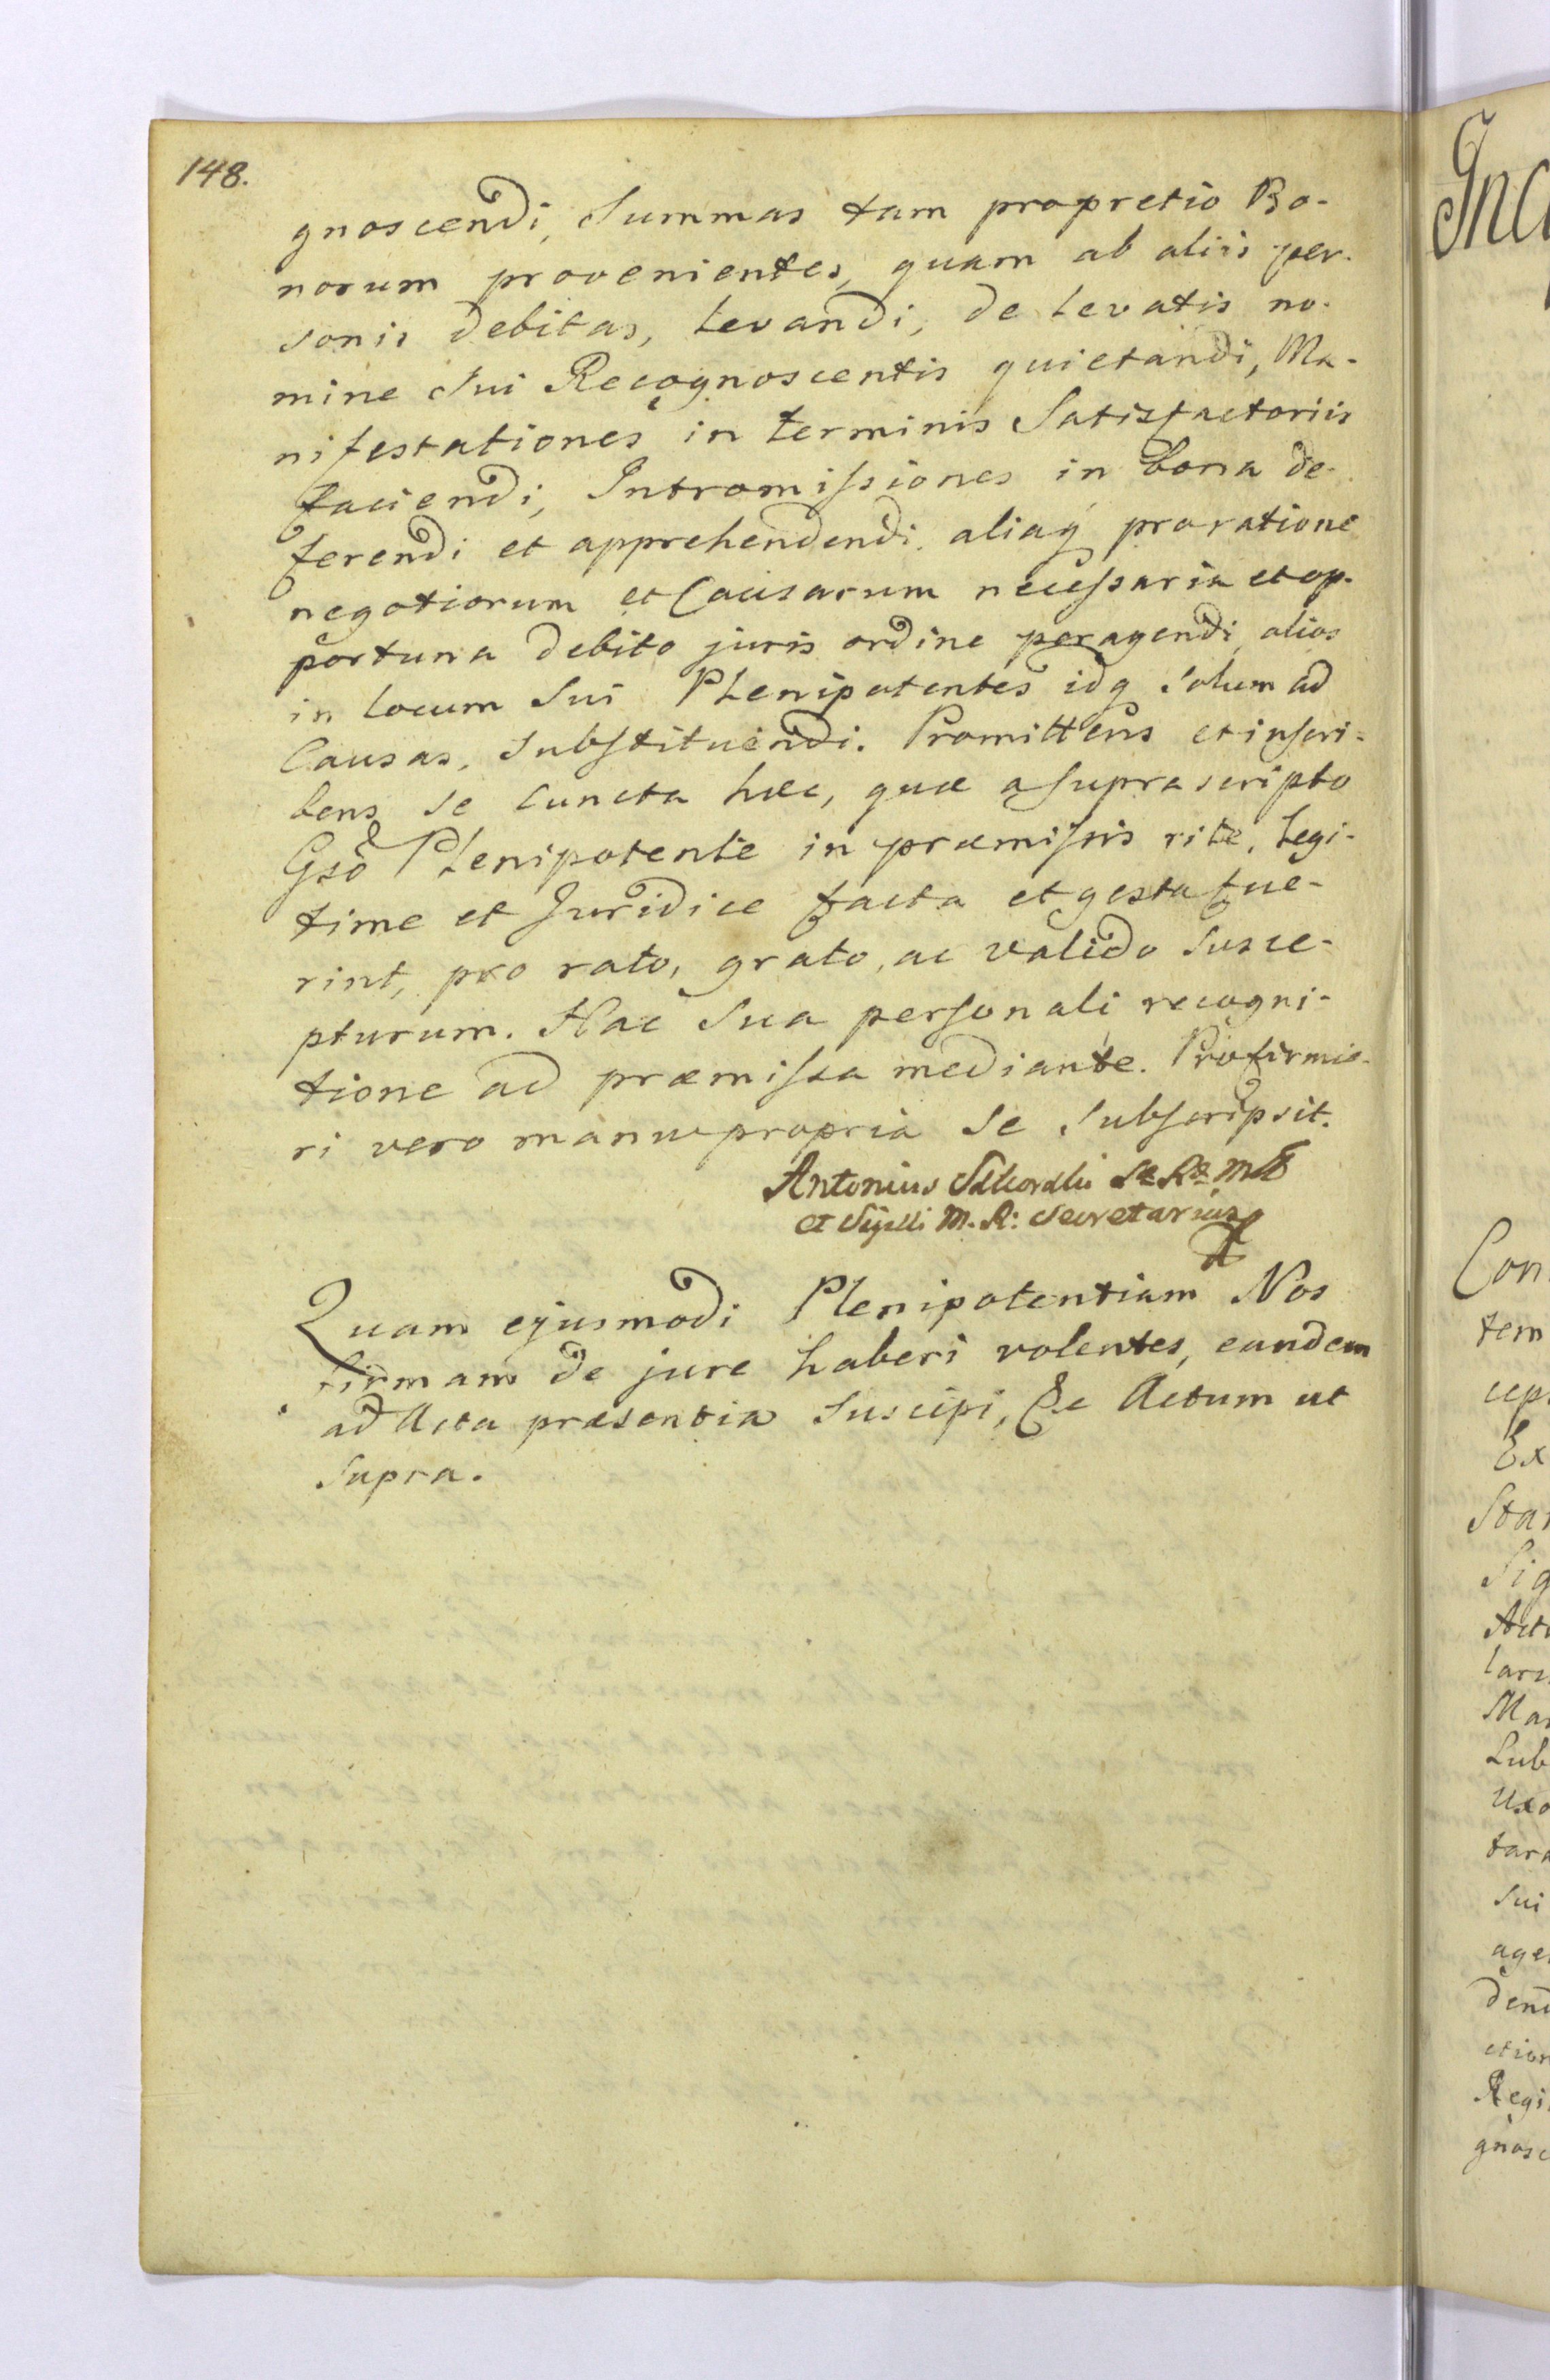 148.
gnoscendi, Summas tam propretio Bo-
norum provenientes, quam ab aliis per-
sonis debitas, levandi, de levatis no-
mine sui Recognoscentis quietandi, Ma-
nifestationes in terminis Satisfactoriis
faciendi, Intromissiones in bona de-
ferendi et apprehendendi, aliaq proratione
negotiorum et Causarum necessaria et op-
portuna debito juris ordine peragendi, alios
in locum Sui Plenipotentes idq Solum ad
Causas, Substituendi. Promittens et inscri-
bens se cuncta hæc, quæ a suprascripto
Gso Plenipotente in præmissis rite, legi-
time et Juridice facta et gesta fue-
rint, pro rato, grato, ac valido susce-
pturum. Hac Sua personali recogni-
tione ad præmissa mediante. Profirmio-
ri vero manupropria Se Subscripsit.
Antonius
et M. R: Secretarius
Quam ejusmodi Plenipotentiam Nos
firmam de jure haberi volentes, eandem
ad Acta præsentia Suscipi, &c Actum ut
Supra.
Con
tem
cep
Ex
Sta
Sig
Act
lars
Mar
Lub
Uxo
tara
Sui
age
den
ction
Regi
gnosc